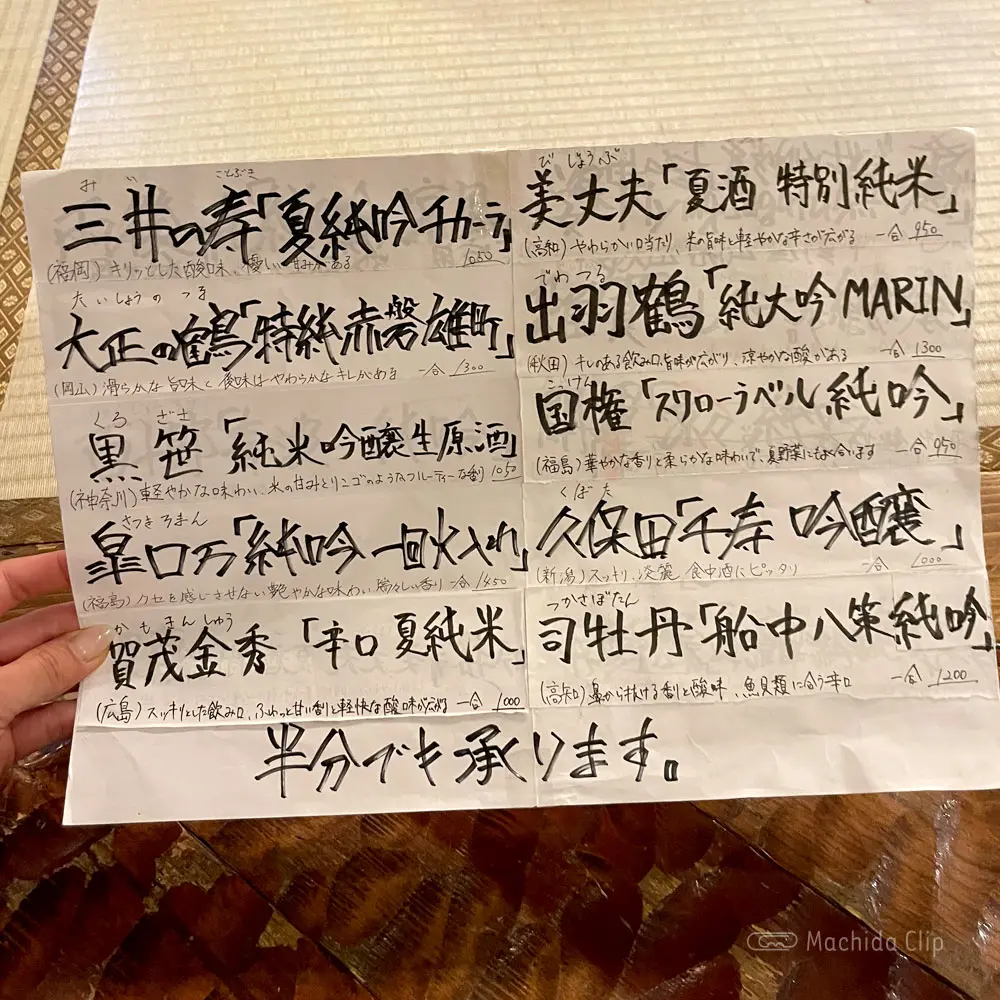 みい ことぶき
三井の寿「夏純吟チカーラ」
(福岡)キリッとした酸味、優しい甘みがある 1050
たいしょうの つる
大正の鶴「特純赤磐雄町」
(岡山)滑らかな旨味と後味はやわらかなキレがある 一合 1300
くろ ざさ
黒笹「純米吟醸生原酒」
(神奈川)軽やかな味わい、米の甘みとリンゴのようなフルーティーな香り 1050
さつきろまん
皐ロ万「純吟 一回火入れ」
(福島)クセを感じさせない艶やかな味わい、瑞々しい香り 一合 1450
かもきんしゅう
賀茂金秀「辛口 夏純米」
(広島)スッキリとした飲み口、ふわっと甘い香りと軽快な酸味が広がる 一合 1000
びじょうぶ
美丈夫「夏酒 特別純米」
(高知)やわらかい口当たり、米の旨味と軽やかな辛さが広がる 一合 950
でわつる
出羽鶴「純大吟 MARIN」
(秋田)キレのある飲み口、旨味が広がり、涼やかな酸がある 一合 1300
こっけん
国権「スワローラベル 純吟」
(福島)華やかな香りと柔らかな味わいで、夏野菜にもよく合います 一合 950
くぼた
久保田「千寿 吟醸」
(新潟)スッキリ、淡麗 食中酒にピッタリ 一合 1000
つかさぼたん
司牡丹「船中八策純吟」
(高知)鼻から抜ける香りと酸味、魚貝類に合う辛口 一合 1200
半分でも承ります。
Machida Clip